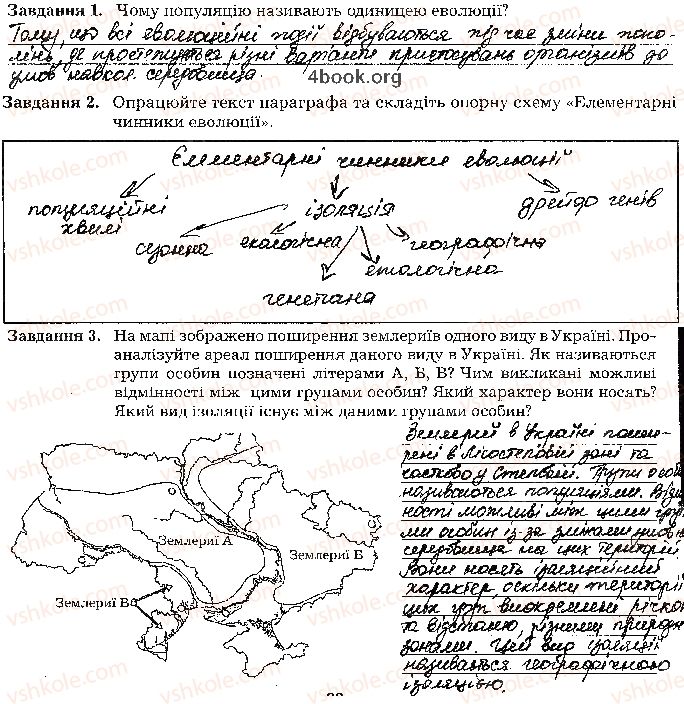 Завдання 1. Чому популяцію називають одиницею еволюції?
Тому, що всі еволюційні події відбуваються під час зміни поко-
лінь, де простежується різні варіанти пристосувань організмів до
умов навкол. середовища.
4book.org
Завдання 2. Опрацюйте текст параграфа та складіть опорну схему «Елементарні
чинники еволюції».
Елементарні чинники еволюції
популяційні
хвилі
ізоляція
дрейф генів
сезонна
екологічна
географічна
етологічна
генетична
Завдання 3. На мапі зображено поширення землериїв одного виду в Україні. Про-
аналізуйте ареал поширення даного виду в Україні. Як називаються
групи особин позначені літерами А, Б, В? Чим викликані можливі
відмінності між цими групами особин? Який характер вони носять?
Який вид ізоляції існує між даними групами особин?
Землерий в Україні поши-
рені в Лісостеповій зоні та
частково у Степовій. Групи особ
називаються популяціями. Відм
ності можливі між цими гру
ми особин із-за зміжами умов
середовища на цих територіях
Вони носять ізоляційний
характер, оскільки територіі
цих груп виокремлені річко
та відстаню, різними природн
зонами. Цей вид ізоляції
називається географічною
ізоляцією.
Землериї А
Землериї Б
Землериї В
vshkole.com